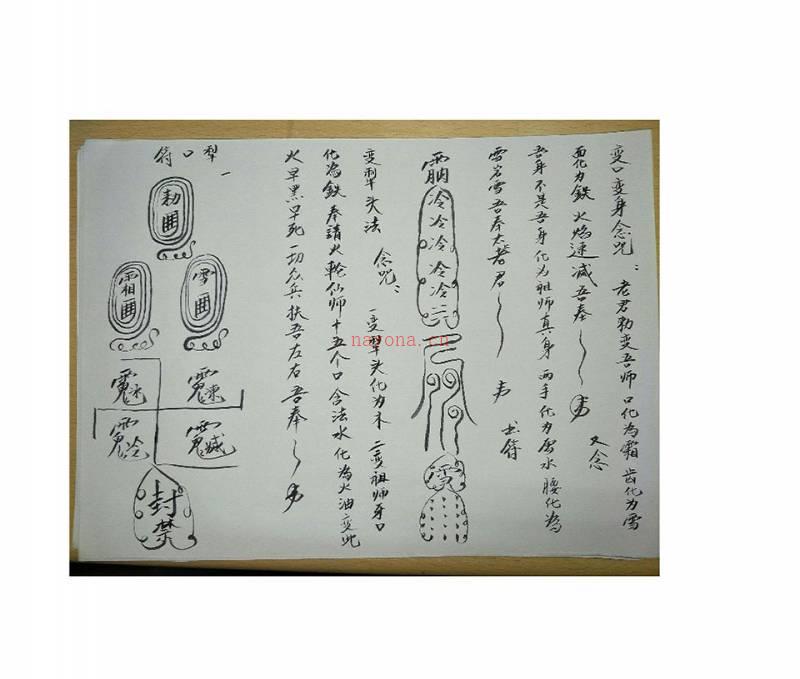 变口变身念咒：老君勅变吾师口化为霜 齿化为雪
面化为鉄 火焰速减吾奉
又念
吾身不是吾身化为祖师真身 两手化为 水 腰化为
雪岩雪吾奉太 君
书符
冷冷冷冷冷
变犁头法 念咒：一变犁头化为木 二变祖师牙口
化为鉄 奉請火輪仙师十五个口含法水化为火油变此
火早黑早死一切众兵扶吾左右吾奉
犁口符
勅
雪
霜
封禁
nayona.cn